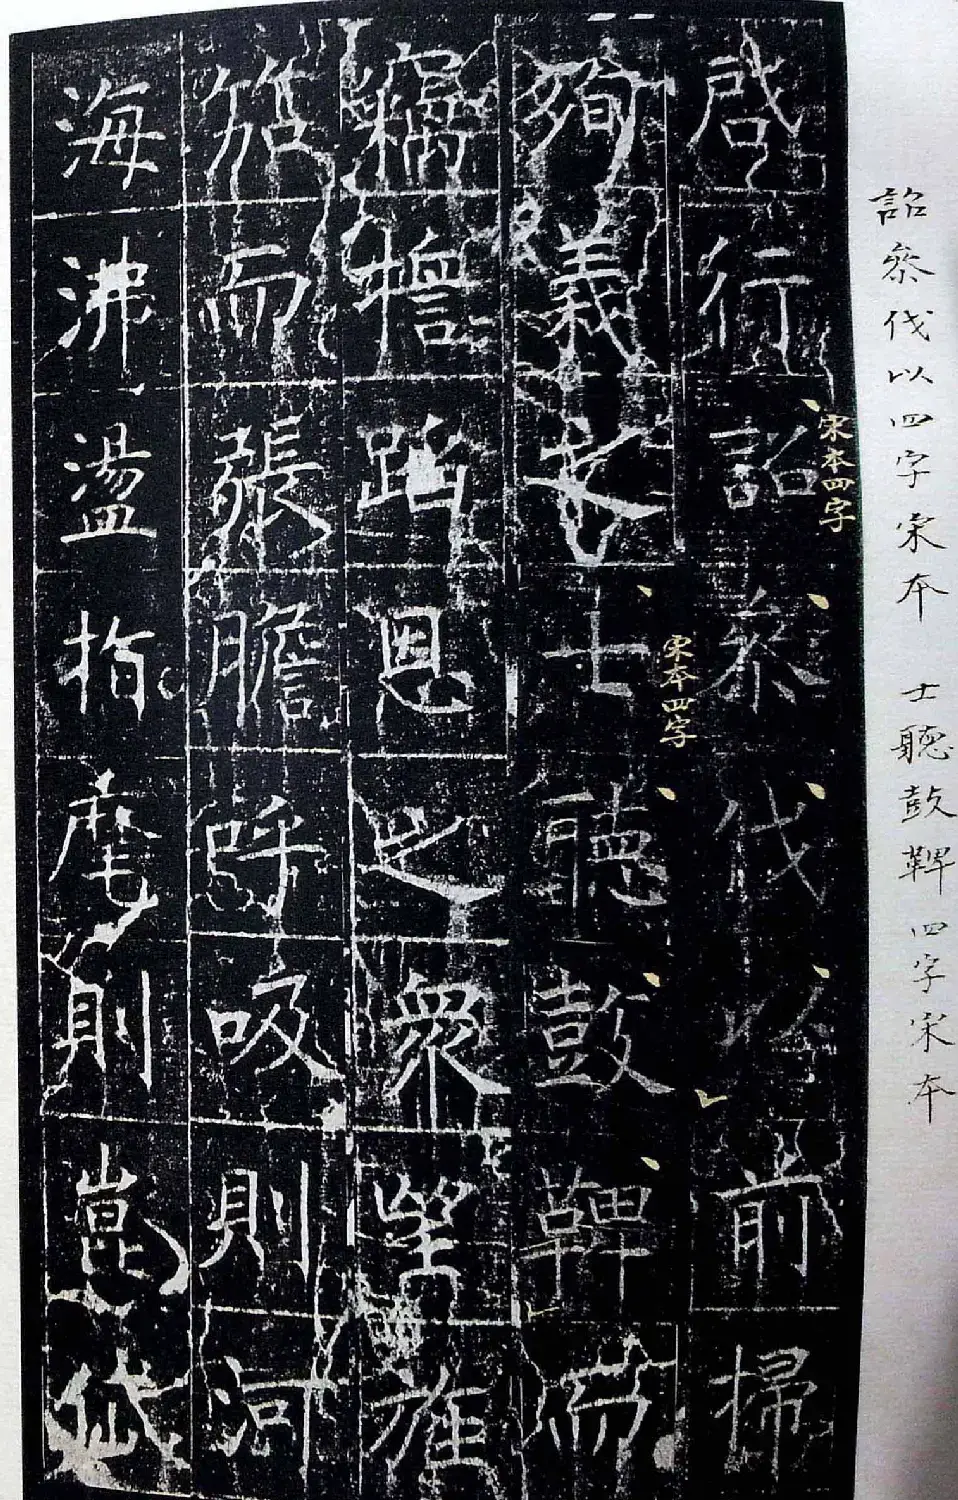 詔叅伐以四字宋本　士聽鼓鞞四字宋本
啓行詔叅伐以前掃
宋本四字
殉義之士聽鼓鞞而
宋本四字
竊檐蹈恩之眾望旌
笳而張膽呼吸則河
海沸盪指麾則崑岱